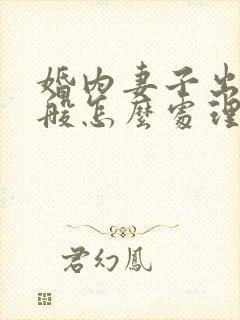 婚内妻子出
般怎麼處理
君幻鳳